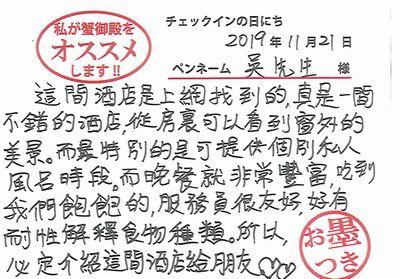 私が蟹御殿を
オススメ
します!!
チェックインの日にち
2019年11月21日
ペンネーム 吳先生 様
這間酒店是上網找到的,真是一間
不錯的酒店,從房裏可以看到窗外的
美景。而最特別的是可提供個別私人
風呂時段。而晚餐就非常豐富,吃到
我們飽飽的,服務員很友好,好有
耐性解釋食物種類。所以,
必定介紹這間酒店給朋友♡♡
お墨
つき